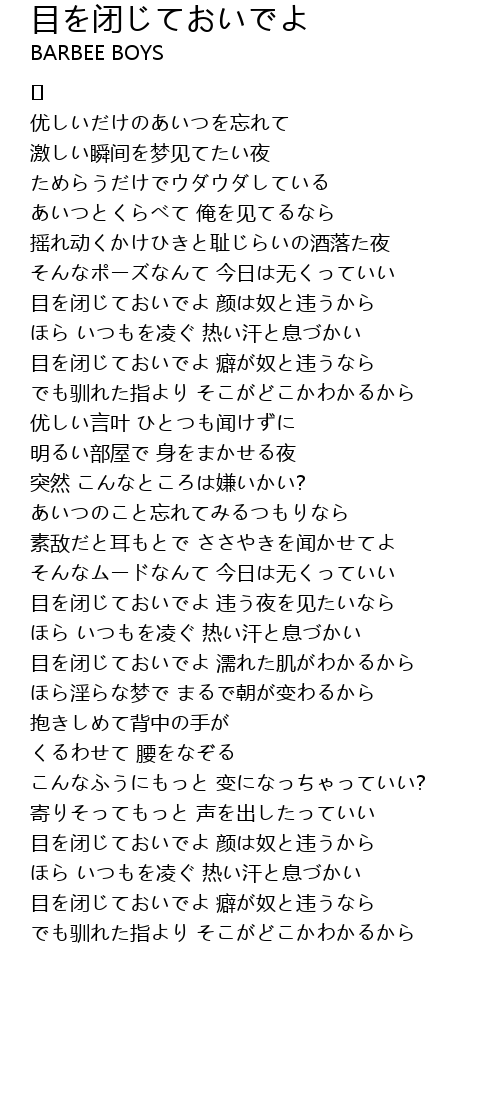 目を闭じておいでよ
BARBEE BOYS
优しいだけのあいつを忘れて
激しい瞬间を梦见てたい夜
ためらうだけでウダウダしている
あいつとくらべて 俺を见てるなら
揺れ动くかけひきと耻じらいの酒落た夜
そんなポーズなんて 今日は无くっていい
目を闭じておいでよ 颜は奴と违うから
ほら いつもを凌ぐ 热い汗と息づかい
目を闭じておいでよ 癖が奴と违うなら
でも驯れた指より そこがどこかわかるから
优しい言叶 ひとつも闻けずに
明るい部屋で 身をまかせる夜
突然 こんなところは嫌いかい?
あいつのこと忘れてみるつもりなら
素敌だと耳もとで ささやきを闻かせてよ
そんなムードなんて 今日は无くっていい
目を闭じておいでよ 违う夜を见たいなら
ほら いつもを凌ぐ 热い汗と息づかい
目を闭じておいでよ 濡れた肌がわかるから
ほら淫らな梦で まるで朝が变わるから
抱きしめて背中の手が
くるわせて 腰をなぞる
こんなふうにもっと 变になっちゃっていい?
寄りそってもっと 声を出したっていい
目を闭じておいでよ 颜は奴と违うから
ほら いつもを凌ぐ 热い汗と息づかい
目を闭じておいでよ 癖が奴と违うなら
でも驯れた指より そこがどこかわかるから